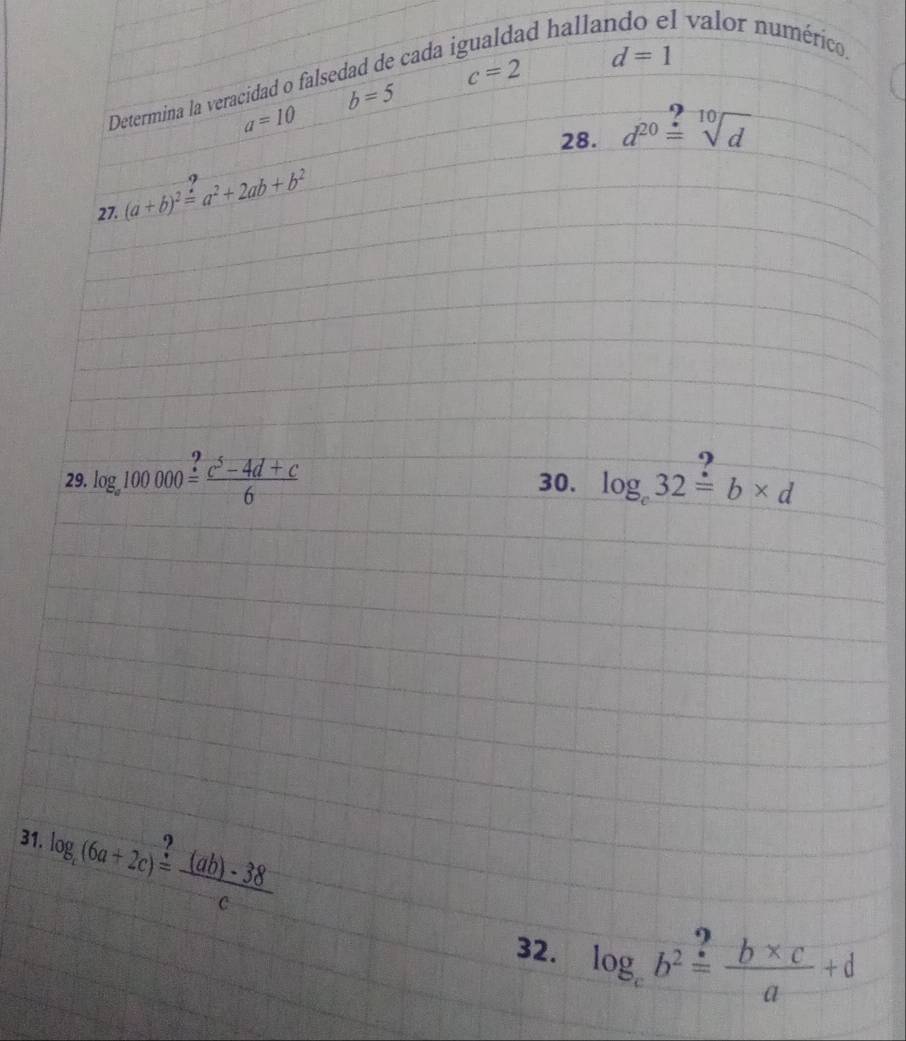 Determina la veracidad o falsedad de cada igualdad hallando el valor numérico.
a = 10 b = 5 c = 2 d = 1
27. (a + b)² ≟ a² + 2ab + b²
28. d²⁰ ≟ ¹⁰√d
29. logₐ 100 000 ≟ (c⁵ – 4d + c)/6
30. log_c 32 ≟ b × d
31. log_c (6a + 2c) ≟ ((ab) - 38)/c
32. log_c b² ≟ (b × c)/a + d